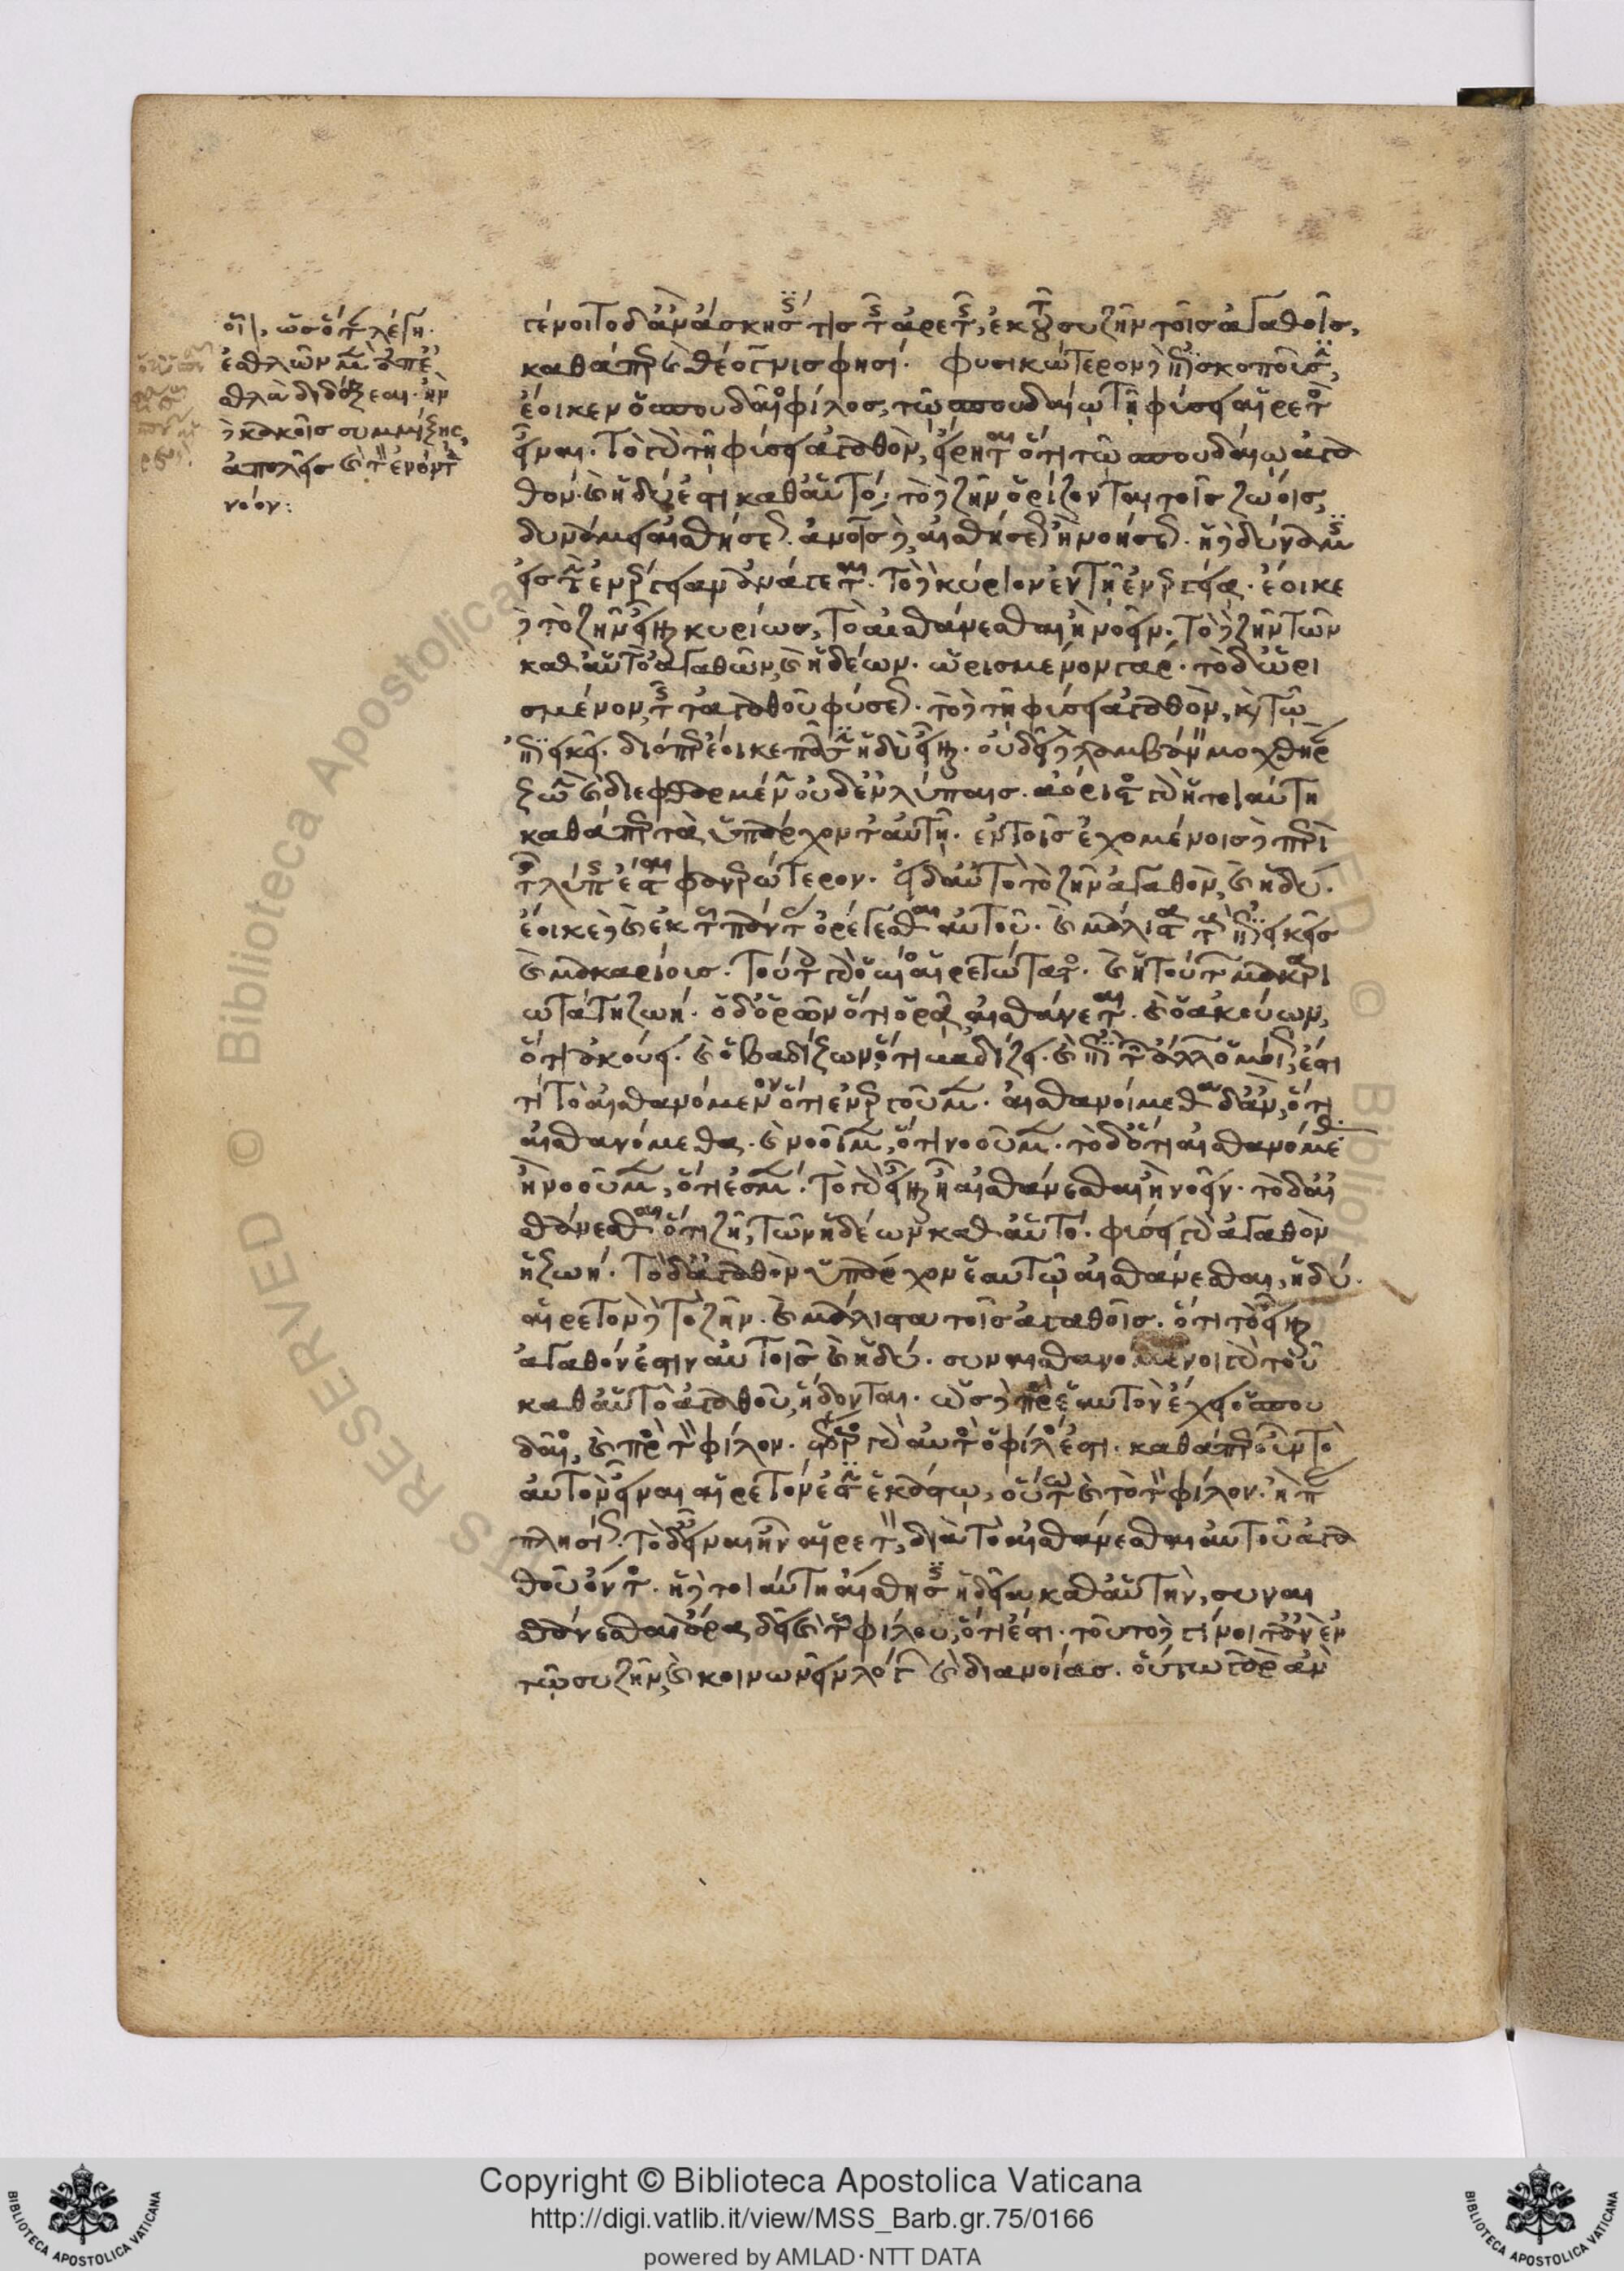 ὡς ὅταν λέγη·
ἐσθλῶν μὲν γὰρ ἀπ' ἐ
σθλὰ διδάξεαι· ἢν
δὲ κακοῖς συμμίξης,
ἀπολεῖς καὶ τὸν ἐνόντα
νόον:
γένοιτο δ' ἂν ἄσκησίς τις τῆς ἀρετῆς, ἐκ τοῦ συζῆν τοῖς ἀγαθοῖς,
καθάπερ καὶ θέογνις φησί. φυσικώτερον δὲ ἐπισκοποῦσιν,
ἔοικεν ὁ σπουδαῖος φίλος, τῷ σπουδαίῳ τῇ φύσει αἱρετὸς
εἶναι. τὸ γὰρ τῇ φύσει ἀγαθὸν, εἴρηται ὅτι τῷ σπουδαίῳ ἀγα
θὸν καὶ ἡδύ ἐστι καθ' αὑτό. τὸ δὲ ζῆν ὁρίζονται τοῖς ζώοις,
δυνάμει αἰσθήσεως. ἀνοις δὲ, αἰσθήσεως ἢ νοήσεως. ἡ δὲ δύναμις
εἰς τὴν ἐνέργειαν ἀνάγεται. τὸ δὲ κύριον ἐν τῇ ἐνεργεία. ἔοικε
δὲ τὸ ζῆν εἶναι κυρίως, τὸ αἰσθάνεσθαι ἢ νοεῖν. τὸ δὲ ζῆν τῶν
καθ' αὑτὸ ἀγαθῶν, καὶ ἡδέων. ὡρισμένον γάρ. τὸ δ' ὡρι
σμένον, τῆς τἀγαθοῦ φύσεως. τὸ δὲ τῇ φύσει ἀγαθὸν, καὶ τῷ
ἐπιεικεῖ. διόπερ ἔοικε πᾶσιν ἡδὺ εἶναι. οὐ δεῖ δὲ λαμβάνειν μοχθηρὰν
ζωὴν καὶ διεφθαρμένην οὐδ' ἐν λύπαις. ἀόριστος γὰρ ἡ τοιαύτη
καθάπερ τὰ ὑπάρχοντα αὐτῇ. ἐν τοῖς ἐχομένοις δὲ περὶ
τῆς λύπης ἔσται φανερώτερον. εἰ δ' αὐτὸ τὸ ζῆν ἀγαθὸν, καὶ ἡδύ.
ἔοικε δὲ καὶ ἐκ τοῦ πάντας ὀρέγεσθαι αὐτοῦ. καὶ μάλιστα τοὺς ἐπιεικεῖς
καὶ μακαρίους. τούτοις γὰρ ὁ βίος αἱρετώτατος. καὶ ἡ τούτων μακαρι
ωτάτη ζωή. ὁ δ' ὁρῶν ὅτι ὁρᾷ αἰσθάνεται. καὶ ὁ ἀκούων,
ὅτι ἀκούει. καὶ ὁ βαδίζων, ὅτι βαδίζει. καὶ ἐπὶ τῶν ἄλλων ὁμοίως, ἔστι
τι τὸ αἰσθανόμενον ὅτι ἐνεργοῦμεν. αἰσθανοίμεθα δ' ἂν, ὅτι
αἰσθανόμεθα. καὶ νοοῖμεν, ὅτι νοοῦμεν. τὸ δ' ὅτι αἰσθανόμεθα
ἢ νοοῦμεν, ὅτι ἐσμέν. τὸ γὰρ εἶναι ἦν αἰσθάνεσθαι ἢ νοεῖν. τὸ δ' αἰ
σθάνεσθαι ὅτι ζῇ, τῶν ἡδέων καθ' αὑτό. φύσει γὰρ ἀγαθὸν
ἡ ζωή. τὸ δ' ἀγαθὸν ὑπάρχον ἑαυτῷ αἰσθάνεσθαι, ἡδύ.
αἱρετὸν δὲ τὸ ζῆν. καὶ μάλιστα τοῖς ἀγαθοῖς. ὅτι τὸ εἶναι
ἀγαθόν ἐστιν αὐτοῖς καὶ ἡδύ. συναισθανόμενοι γὰρ τοῦ
καθ' αὑτὸ ἀγαθοῦ, ἥδονται. ὡς δὲ πρὸς ἑαυτὸν ἔχει ὁ σπου
δαῖος, καὶ πρὸς τὸν φίλον. ἕτερος γὰρ αὐτὸς ὁ φίλος ἐστι. καθάπερ οὖν τὸ
αὐτὸν εἶναι αἱρετόν ἐστιν ἑκάστῳ, οὕτω καὶ τὸ τὸν φίλον. ἢ παρα
πλησίως. τὸ δ' εἶναι ἦν αἱρετὸν, διὰ τὸ αἰσθάνεσθαι αὐτοῦ ἀγα
θοῦ ὄντος. ἡ δὲ τοιαύτη αἴσθησις ἡδεῖα καθ' αὑτήν, συναι
σθάνεσθαι ἄρα δεῖ καὶ τοῦ φίλου, ὅτι ἔστι. τοῦτο δὲ γίνοιτ' ἂν ἐν
τῷ συζῆν, καὶ κοινωνεῖν λόγων καὶ διανοίας. οὕτω γὰρ ἂν
Copyright © Biblioteca Apostolica Vaticana
http://digi.vatlib.it/view/MSS_Barb.gr.75/0166
powered by AMLAD·NTT DATA